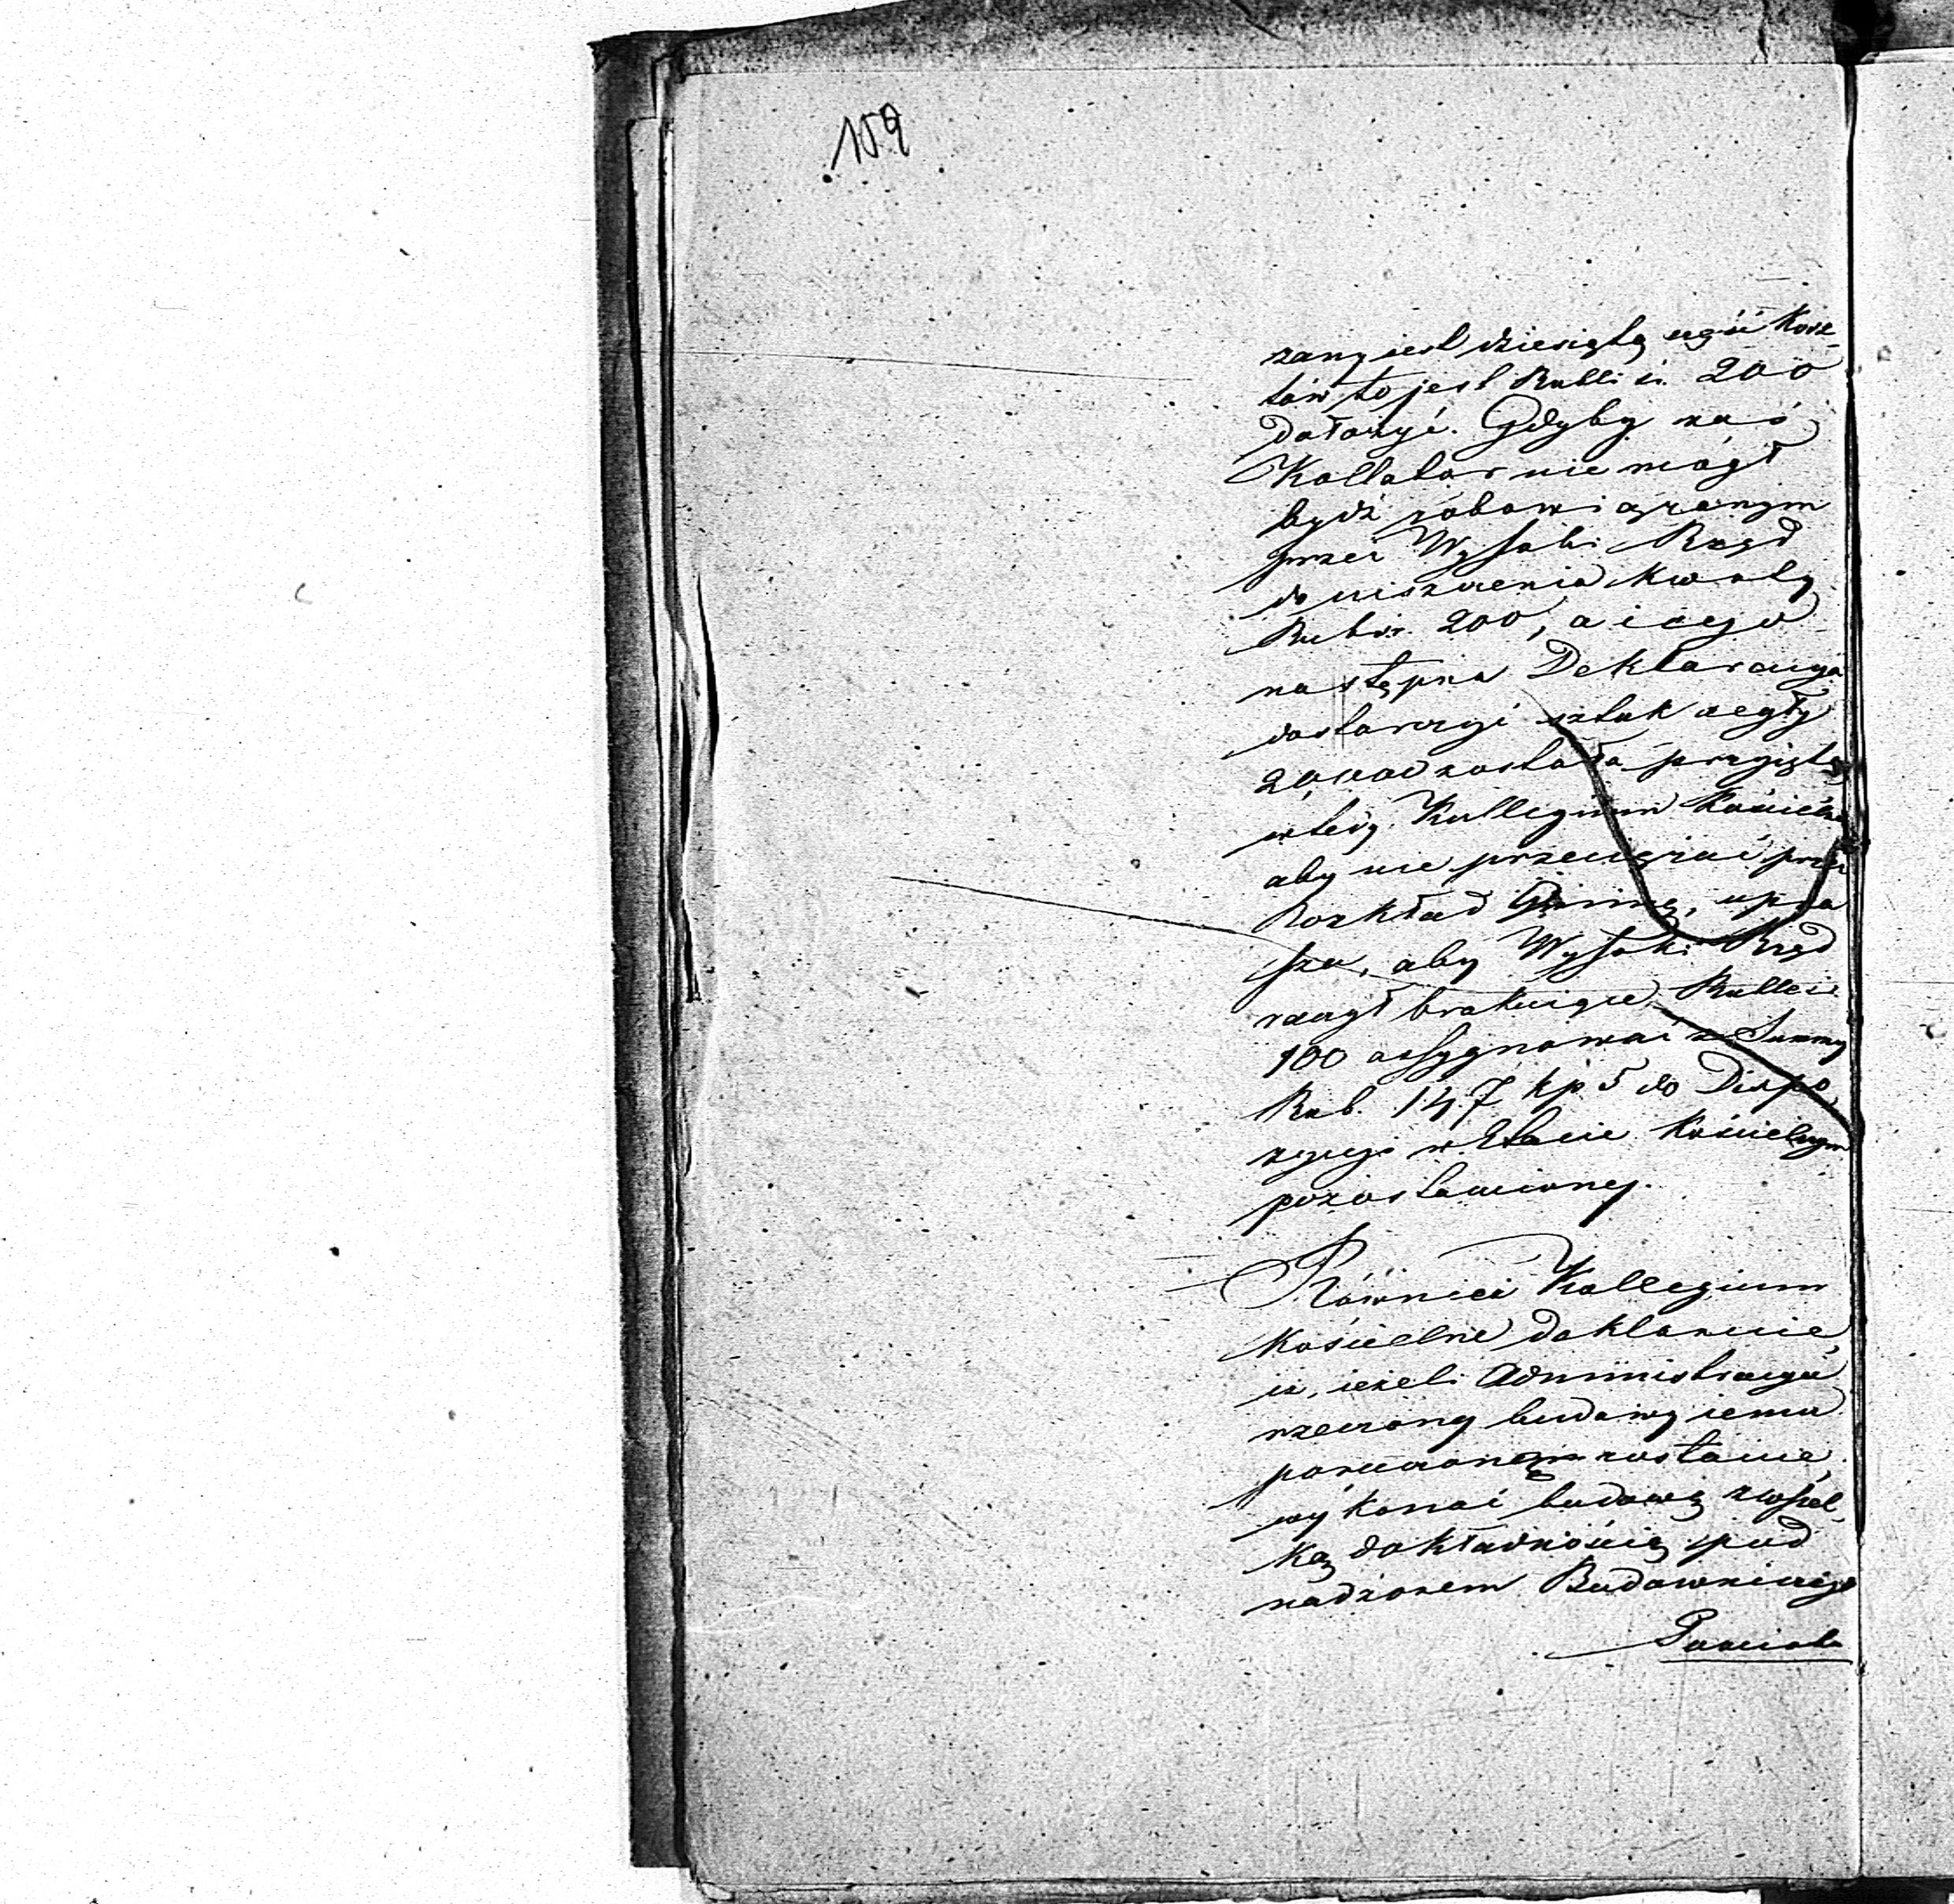 159
zany jest dziesiątą część Kosz-
tów to jest Rubli sr. 200
dołożyć. Gdyby zaś
Kollator nie mógł
bydź zobowiązanym
przez Wysoki Rząd
do uiszczenia kwoty
Rub sr. 200, a iego
następna Deklaracya
dostarczyć sztuk cegły
20,000 została przyięta
wtedy Kollegium Kościelne
aby nie przeciążać przez
Rozkład Gminę, upra
sza, aby Wysoki Rząd
raczył brakuiące Rubli sr.
100 assygnować z Summy
Rub. 147 kp 5 do Dispo
zycyi w Etacie Kościelnym
pozostawioney.
Również Kollegium
Kościelne deklaruie,
iż, ieżeli Administracya
rzeczony budowy iemu
poruczonem zostanie,
wykonać budowę z wszel-
ką dokładnością pod
nadzorem Budowniczego
Powiatu